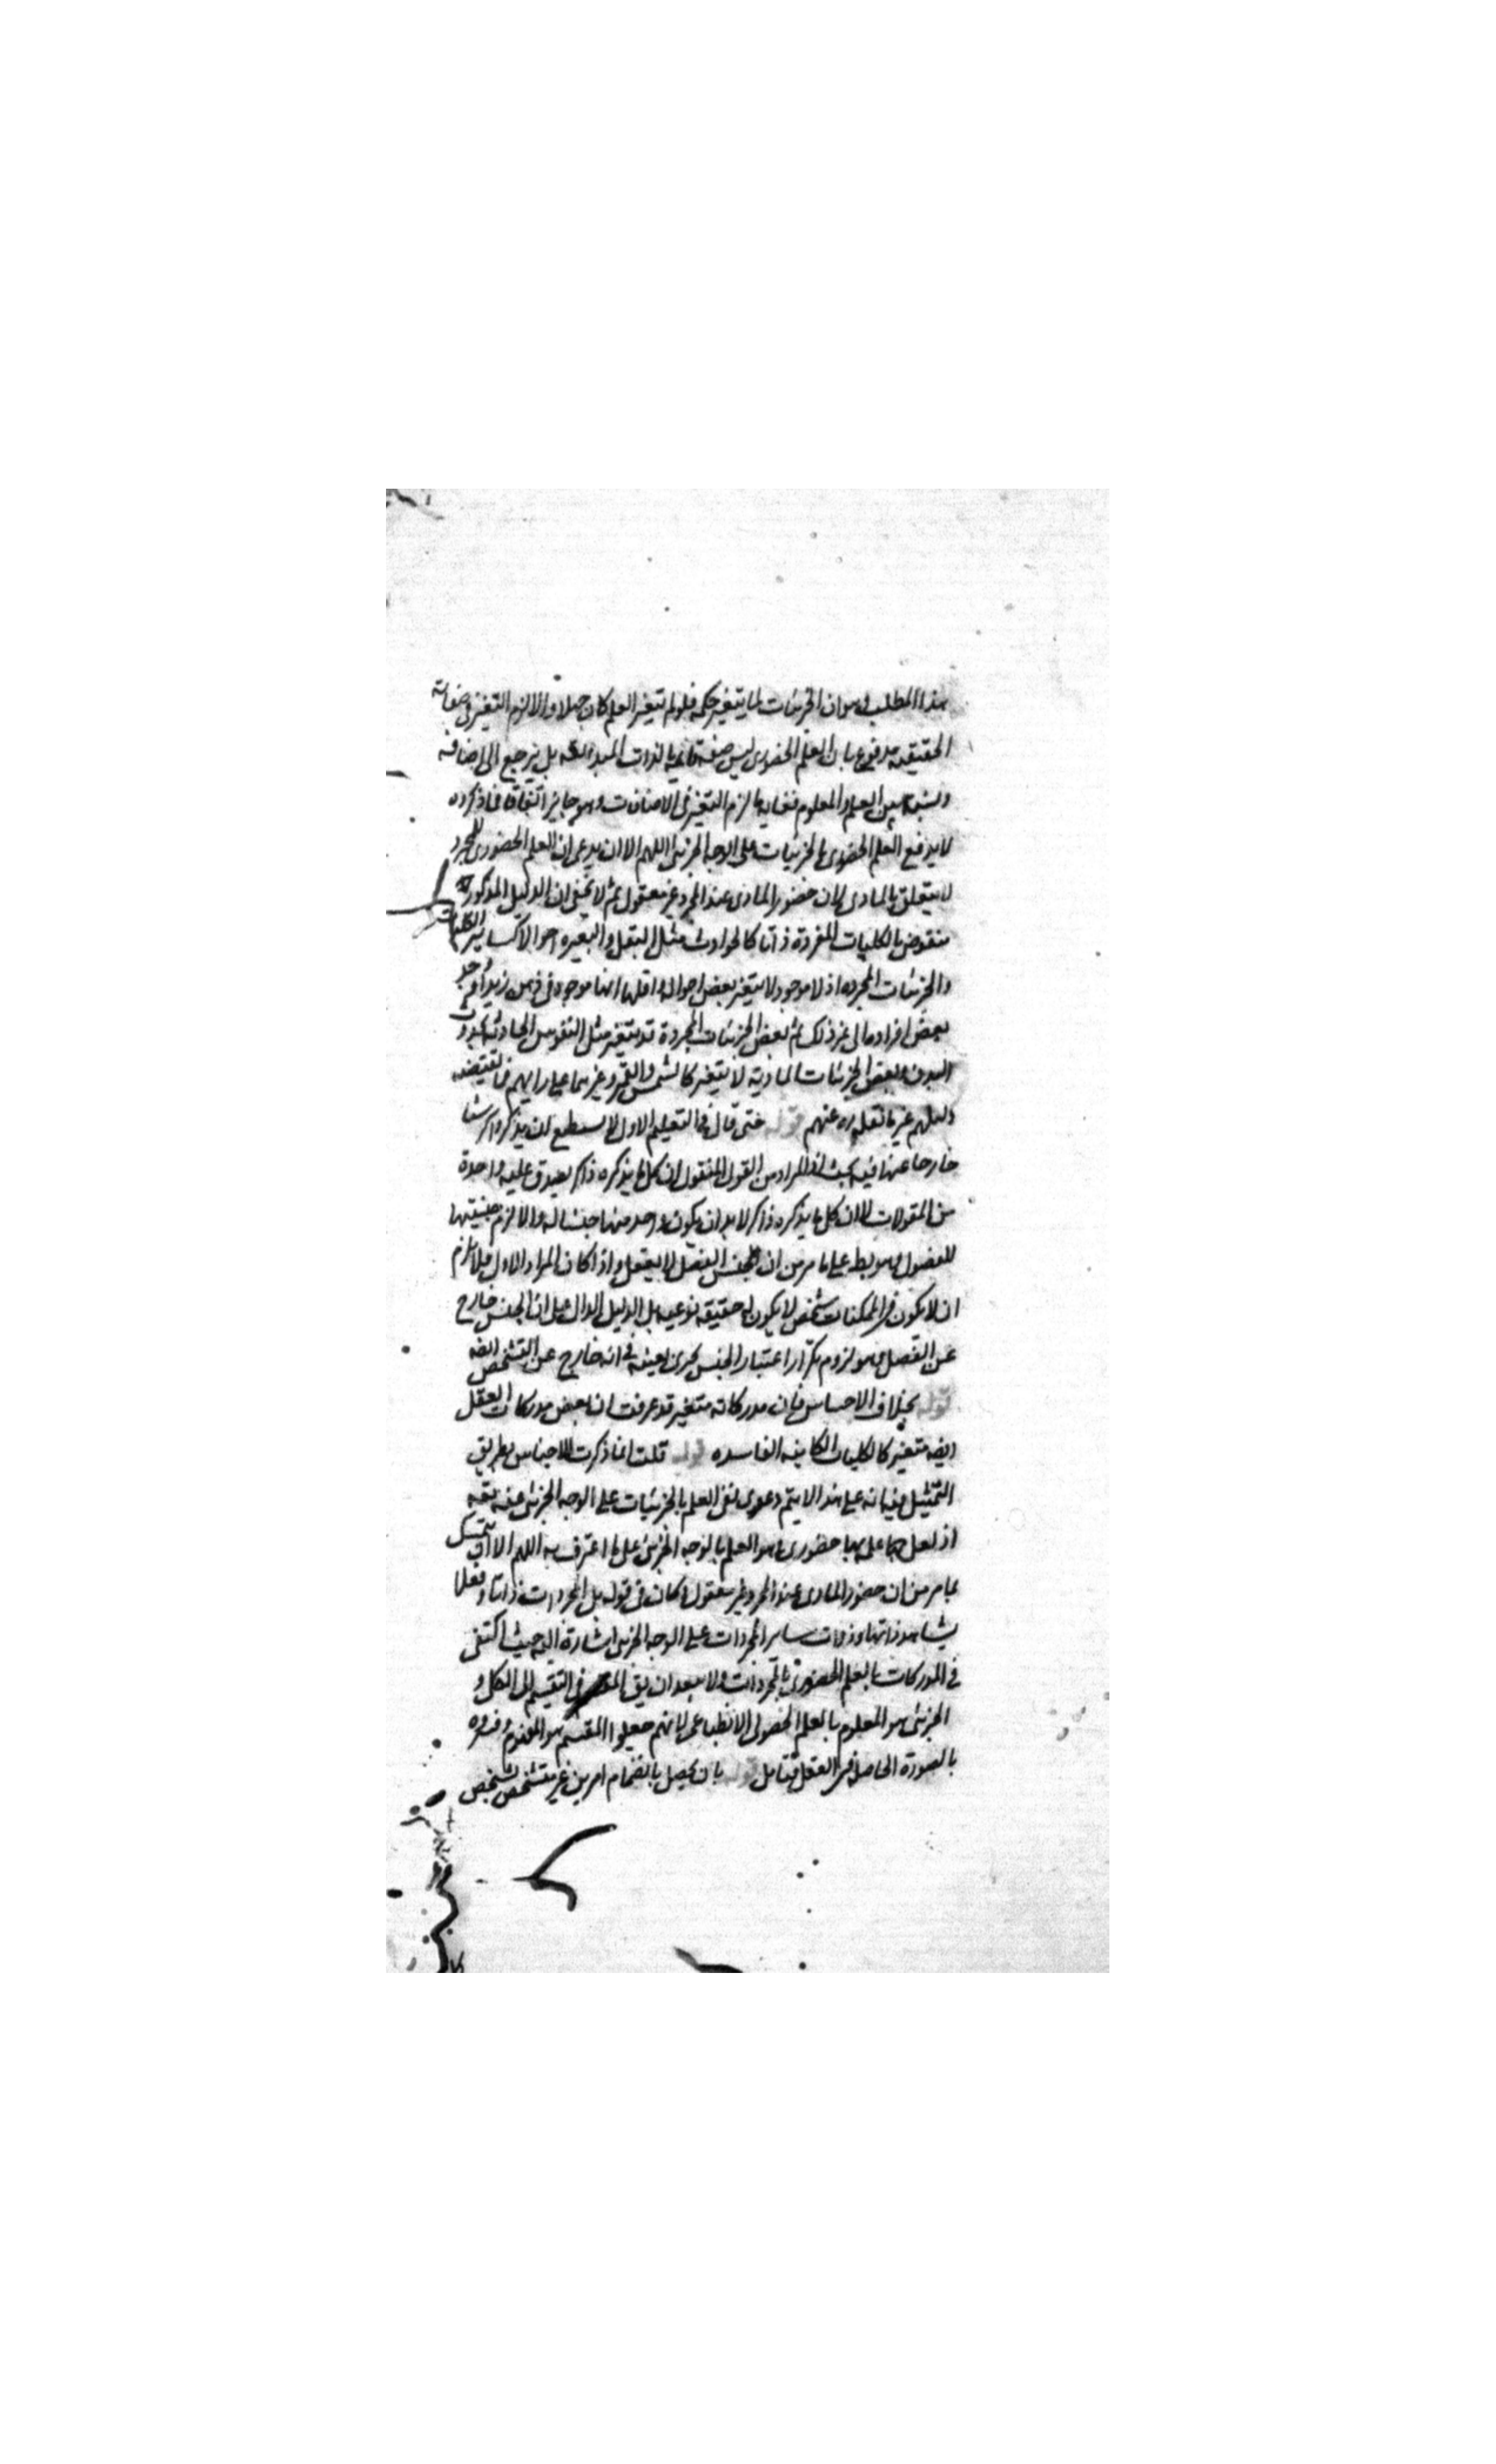 هذا المطلب وهو ان الجزئيات لما يتغير حكمه فلو لم يتغير العلم كان جهلا والا لزم التغير فى صفاته
الحقيقية مدفوع بان العلم الحضورى ليس صفة قائمة بالذات بل يرجع الى اضافة
ونسبة بين العلم والمعلوم فغاية ما لزم التغير فى الاضافات وهو جايز اتفاقا فما ذكروه
لا يدفع العلم الحضورى بالجزئيات على الوجه الجزئى اللهم الا ان يدعى ان العلم الحضورى للمجرد
لا يتعلق بالمادى لان حضور المادى عند المجرد غير معقول ثم لا يخفى ان الدليل المذكور
منقوض بالكليات ذاتا كالحوادث مثل
والجزئيات المجرده اذ لا موجود لا يتغير بعض احواله واقلها انها موجود فى ذهن زيد
بعض افراده الى غير ذلك ثم بعض الجزئيات المجردة قد يتغير مثل النفوس الحادثه
البدن وبعض الجزئيات المادية لا يتغير كالشمس والقمر وغيرهما على رايهم فما يقتضيه
دليلهم غير ما نقله ره عنهم قوله حتى قال فى التعليم الاول لا يستطيع ان يذكر ذاكر شيئا
خارجا عنها فيه بحث اذ المراد من القول المنقول ان كل ما يذكره ذاكر يصدق عليه واحدة
من المقولات لا ان كل ما يذكره ذاكر لا بد ان يكون واحد منها جنسا له والا لزم جنسيتها
للفصول وهو بط على ما مر من ان الجنس الفصل لا يعقل واذا كان المراد الاول فلا يلزم
ان لا يكون فى الممكنات شخص لا يكون له حقيقه نوعيه بل الدليل الدال على ان الجنس خارج
عن الفصل وهو لزوم تكرار اعتبار الجنس يجرى بعينه فى انه خارج عن التشخص ايضه
قوله بخلاف الاحساس فان مدركاته متغير قد عرفت ان بعض مدركات العقل
ايضه متغير كالكليات الكاينه الفاسده قوله قلت انما ذكرت الاجناس بطريق
التمثيل فيه انه على هذا لا يتم دعوى نفى العلم بالجزئيات على الوجه الجزئى عنه تعه
اذ لعل علمه بها حضورى وهو العلم بالوجه الجزئى على ما اعترف به اللهم الا ان يتمسك
بما مر من ان حضور المادى عند المجرد غير معقول وكان فى قوله بل المجردات ذاتا وفعلا
يشاهد ذاتها وذوات ساير المجردات على الوجه الجزئى اشارة اليه حيث اكتفى
فى المدركات بالعلم الحضورى بالمجردات ولا يبعد ان يق فى التقسيم الى الكلى و
الجزئى هو المعلوم بالعلم الحصولى الانطباعى لانهم جعلوا المقسم هو المفهوم وفسروه
بالصورة الحاصلة فى العقل فتامل قوله بان يحصل بانضمام امرين غير متشخص تشخص